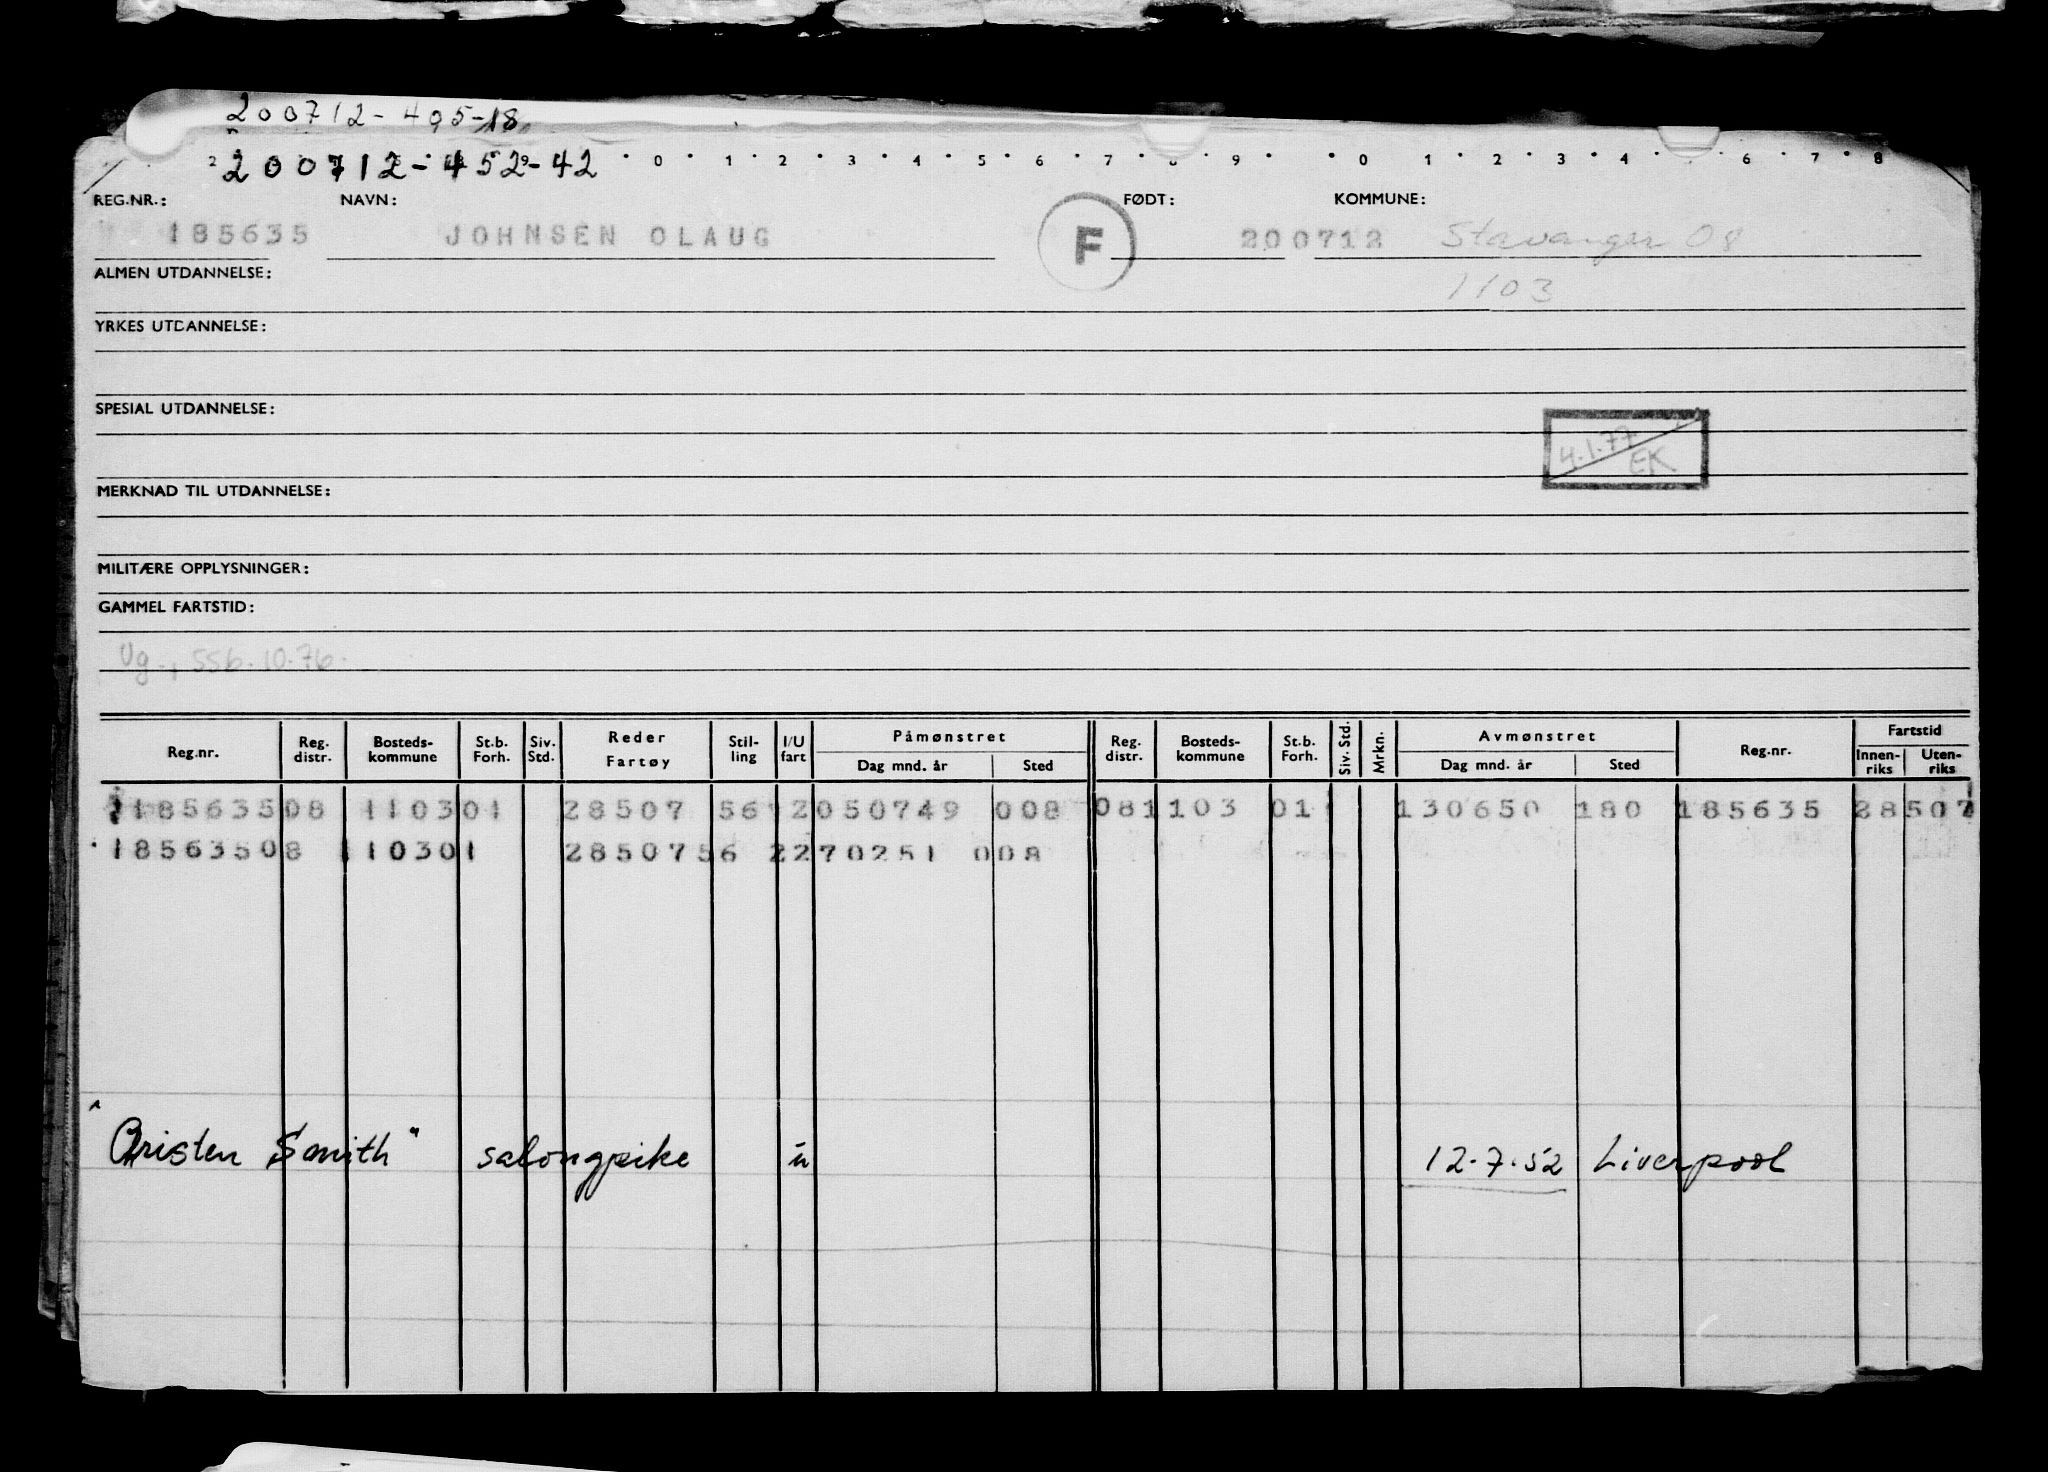 200712-495-18
200712-452-42 0 · 1 · 2 · 3 · 4 · 5 · 6 · 7 · 8 · 9 · · 0 1 · 2 · 3 · 4 · · 6 · 7 · 8
REG.NR.: NAVN: FØDT: KOMMUNE:
185635 JOHNSEN OLAUG F 200712 Stavanger 08
ALMEN UTDANNELSE: 1103
YRKES UTDANNELSE:
SPESIAL UTDANNELSE:
4.1.77 EK
MERKNAD TIL UTDANNELSE:
MILITÆRE OPPLYSNINGER:
GAMMEL FARTSTID:
Ug., 556.10.76.
Reg.nr. Reg. distr. Bosteds-kommune St.b. Forh. Siv. Std. Reder Fartøy Stil-ling I/U fart Påmønstret Dag mnd. år Sted Reg. distr. Bosteds-kommune St.b. Forh. Siv. Std. Mrkn. Avmønstret Dag mnd. år Sted Reg.nr. Fartstid Innen-riks Uten-riks
185635 08 1103 01 28507 56 2 050749 008 08 1103 01 130650 180 185635 28507
185635 08 1103 01 28507 56 2 270251 008
"Christen Smith" salongpike u 12.7.52 Liverpool